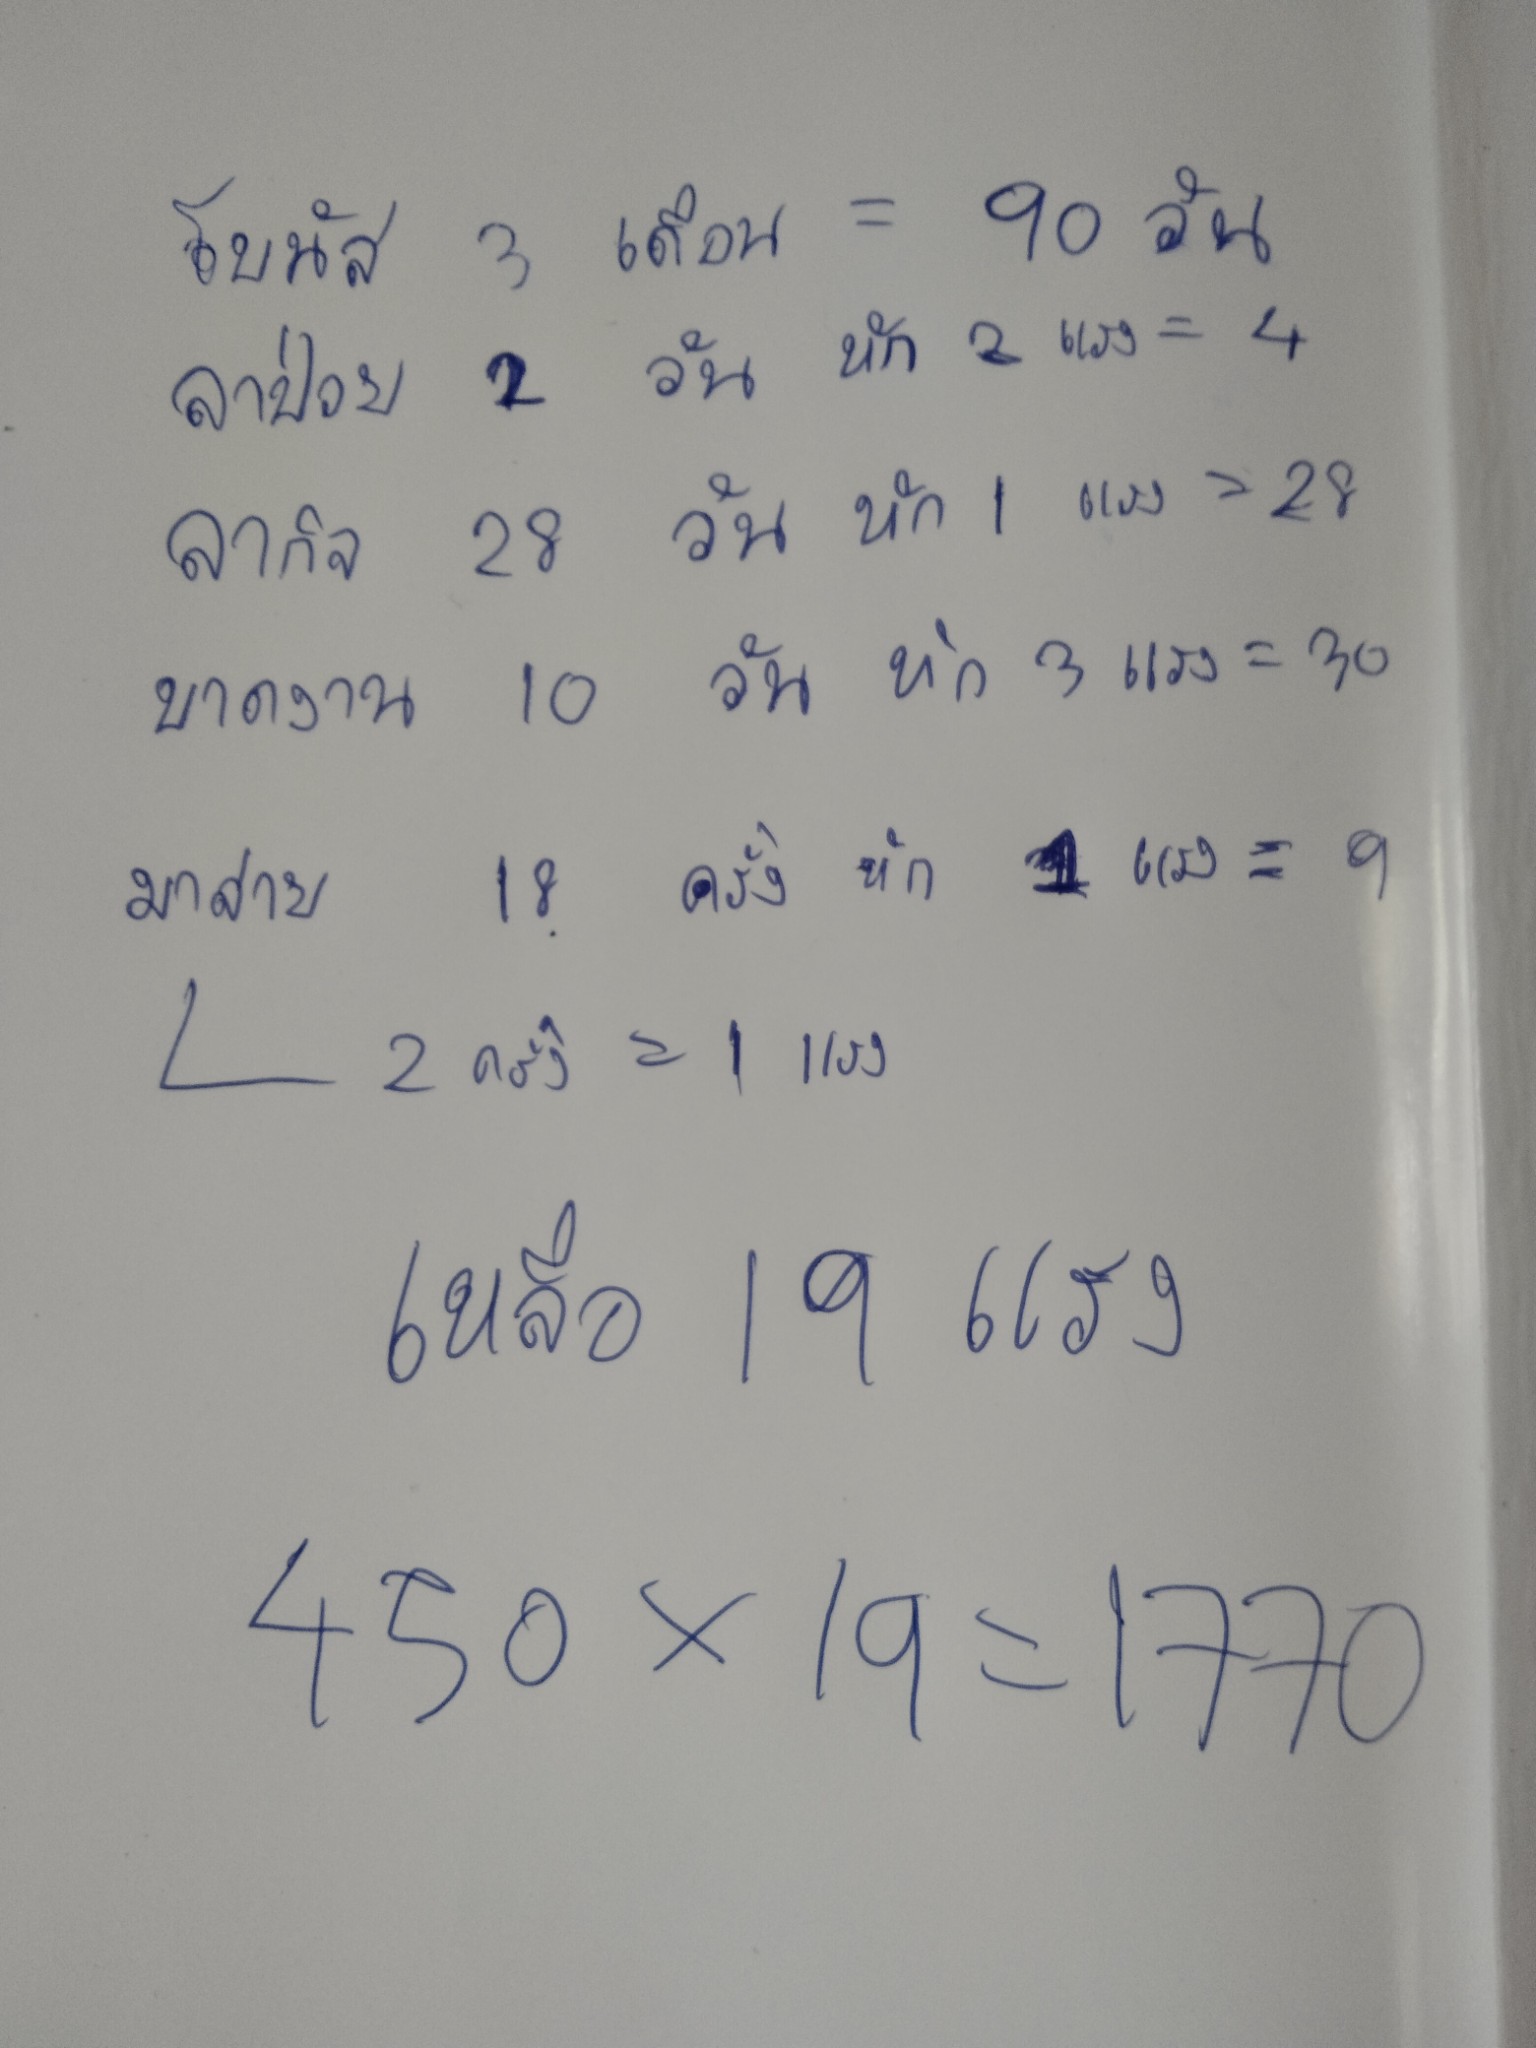 โบนัส 3 เดือน = 90 วัน
ลาป่วย 2 วัน หัก 2 แรง = 4
ลากิจ 28 วัน หัก 1 แรง = 28
ขาดงาน 10 วัน หัก 3 แรง = 30
มาสาย 18 ครั้ง หัก 1 แรง = 9
2 ครั้ง = 1 แรง
เหลือ 19 แรง
450 × 19 = 1770